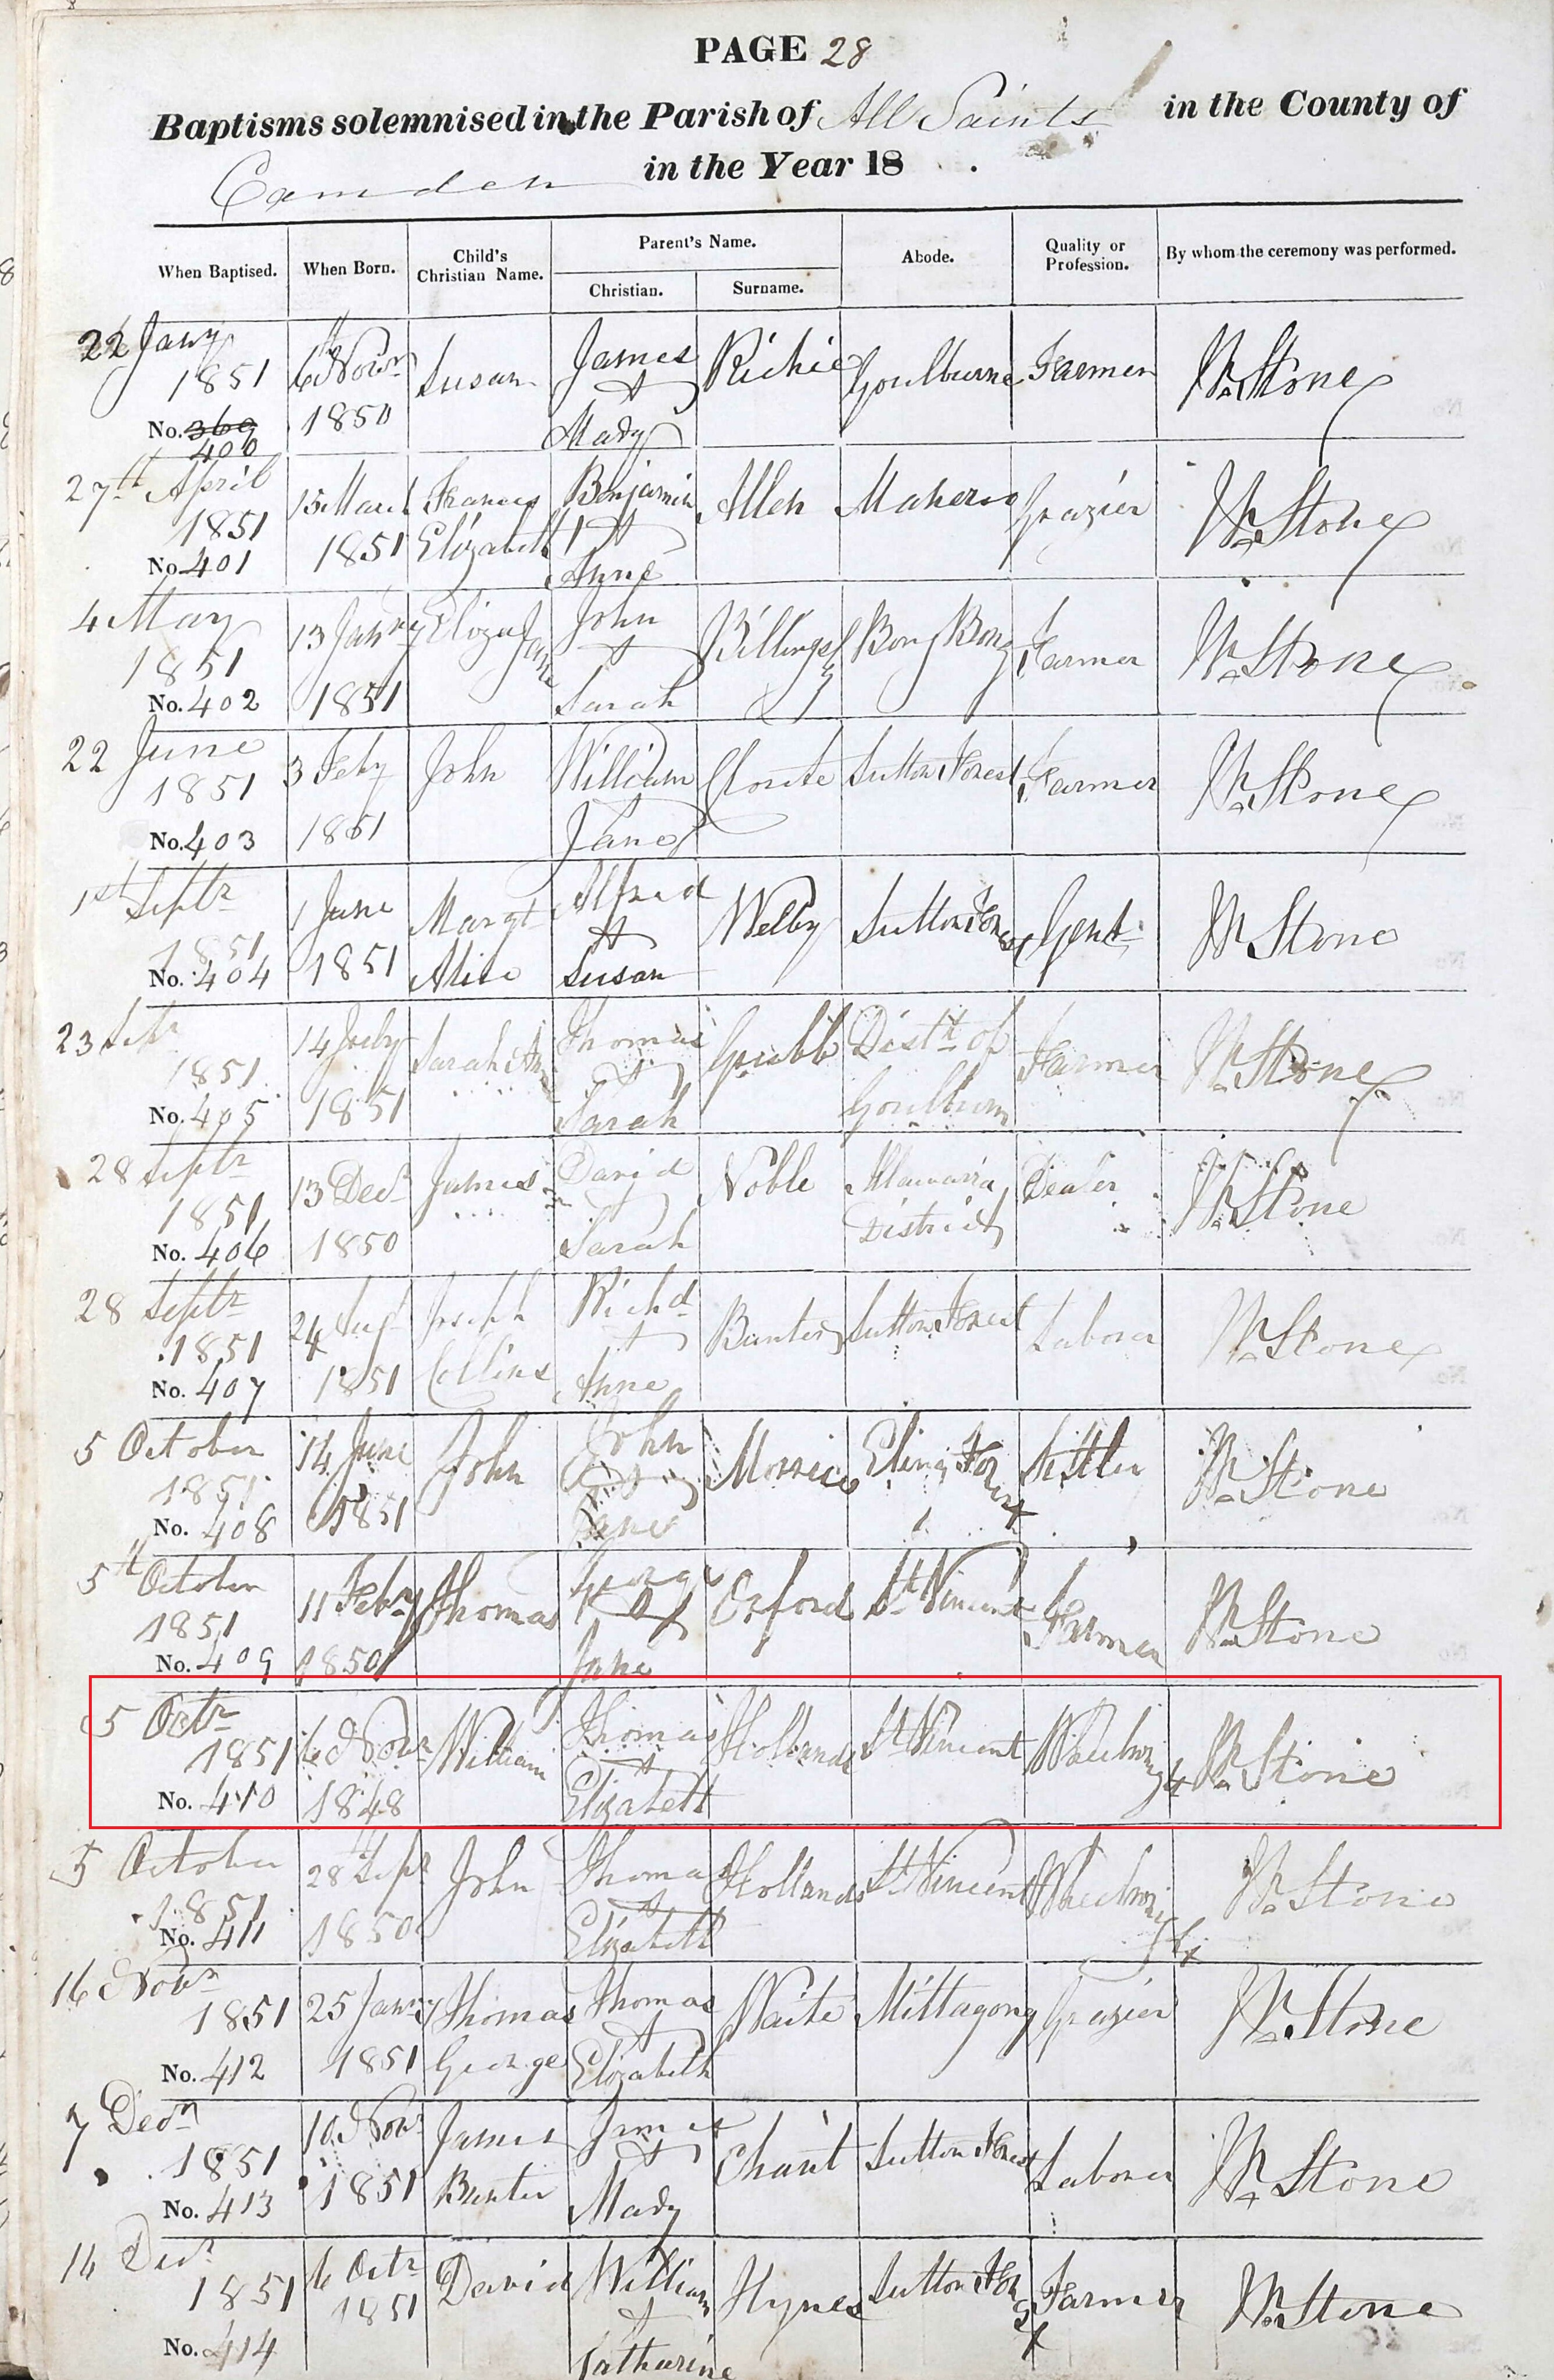 PAGE 28
Baptisms solemnised in the Parish of All Saints in the County of
Camden in the Year 18
When Baptised. When Born. Child's Christian Name. Parent's Name. Christian. Surname. Abode. Quality or Profession. By whom the ceremony was performed.
22 Jany 1851 No. 369 400 6th Novr 1850 Susan James & Mary Richie Goulburne Farmer Wm Stone
27th April 1851 No. 401 15 March 1851 Frances Elizabeth Benjamin & Anne Allen Grazier Wm Stone
4 May 1851 No. 402 13 Janry 1851 Eliza Jane John & Sarah Billingsly Bong Bong Farmer Wm Stone
22 June 1851 No. 403 3 Feby 1851 John William Jane Sutton Forest Farmer Wm Stone
1st Septr 1851 No. 404 1 June 1851 Margt Alice Alfred & Susan Welby Sutton Forest Gent Wm Stone
23 Sepr 1851 No. 405 14 July 1851 Sarah Ann Thomas & Sarah Grubb Distt of Goulburn Farmer Wm Stone
28 Septr 1851 No. 406 13 Decr 1850 James David & Sarah Noble Illawarra District Dealer Wm Stone
28 Septr 1851 No. 407 24 Augt 1851 Joseph Collins Richd & Anne Bunter Sutton Forest Laborer Wm Stone
5 October 1851 No. 408 14 June 1851 John John & Jane Morrice Forest Settler Wm Stone
5th October 1851 No. 409 11 Feby 1850 Thomas George & Jane Oxford St Vincent Farmer Wm Stone
5 Octr 1851 No. 410 6 Novr 1848 William Thomas & Elizabeth Hollands St Vincent Wheelwright Wm Stone
5 October 1851 No. 411 28 Sepr 1850 John Thomas & Elizabeth Hollands St Vincent Wheelwright Wm Stone
16 Novr 1851 No. 412 25 Janry 1851 Thomas George Thomas & Elizabeth Waite Mittagong Grazier Wm Stone
7 Decr 1851 No. 413 10 Novr 1851 James Bunter James & Mary Chant Sutton Forest Laborer Wm Stone
14 Decr 1851 No. 414 6 Octr 1851 David William & Catharine Hynes Sutton Forest Farmer Wm Stone